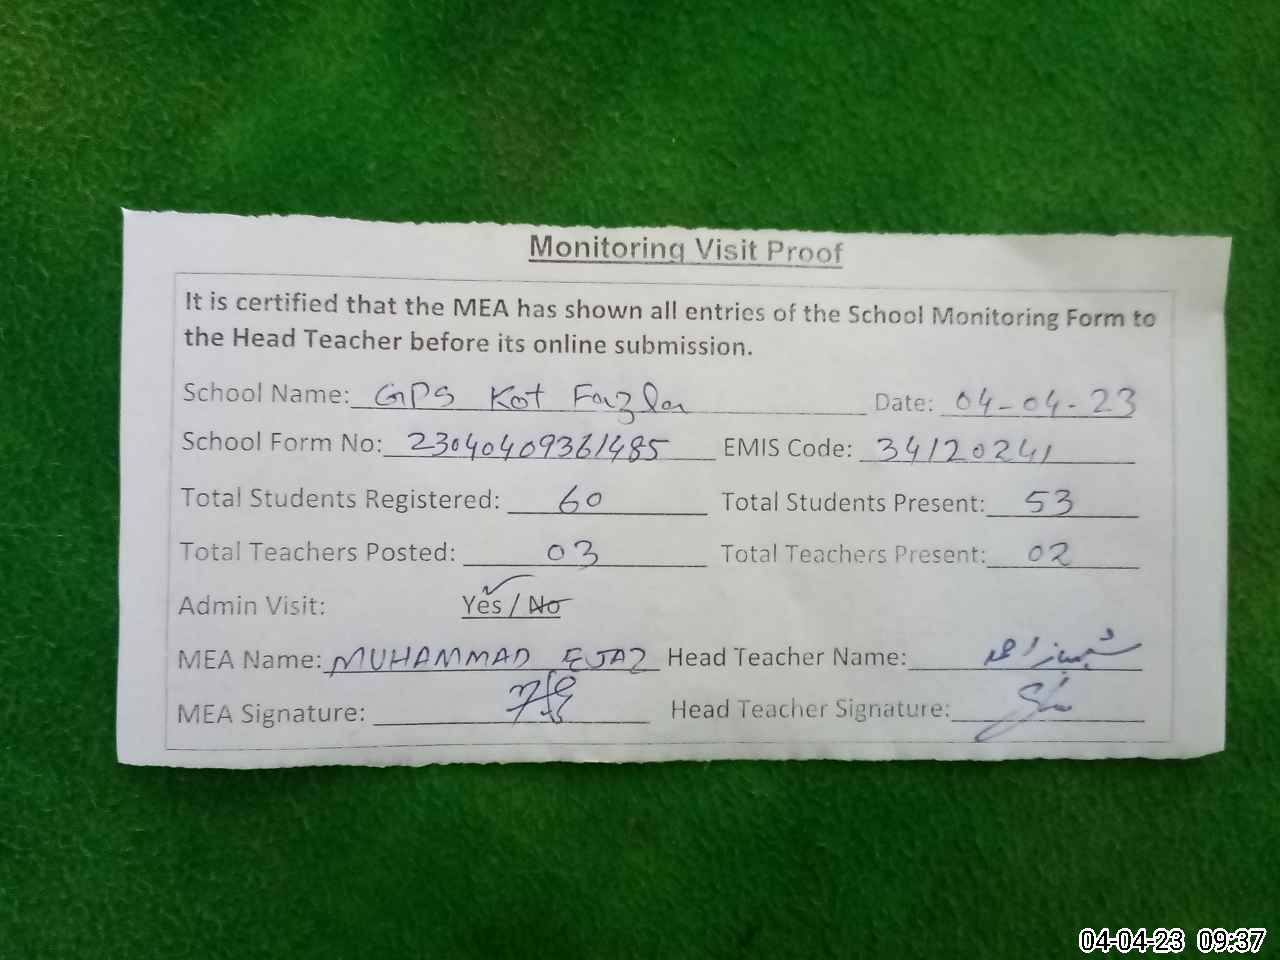 Monitoring Visit Proof
It is certified that the MEA has shown all entries of the School Monitoring Form to
the Head Teacher before its online submission.
School Name: GPS Kot Fazlan Date: 04-04-23
School Form No: 23040409361485 EMIS Code: 34120241
Total Students Registered: 60 Total Students Present: 53
Total Teachers Posted: 03 Total Teachers Present: 02
Admin Visit: Yes / No
MEA Name: MUHAMMAD EJAZ Head Teacher Name: شہباز احمد
MEA Signature: Head Teacher Signature:
04-04-23 09:37